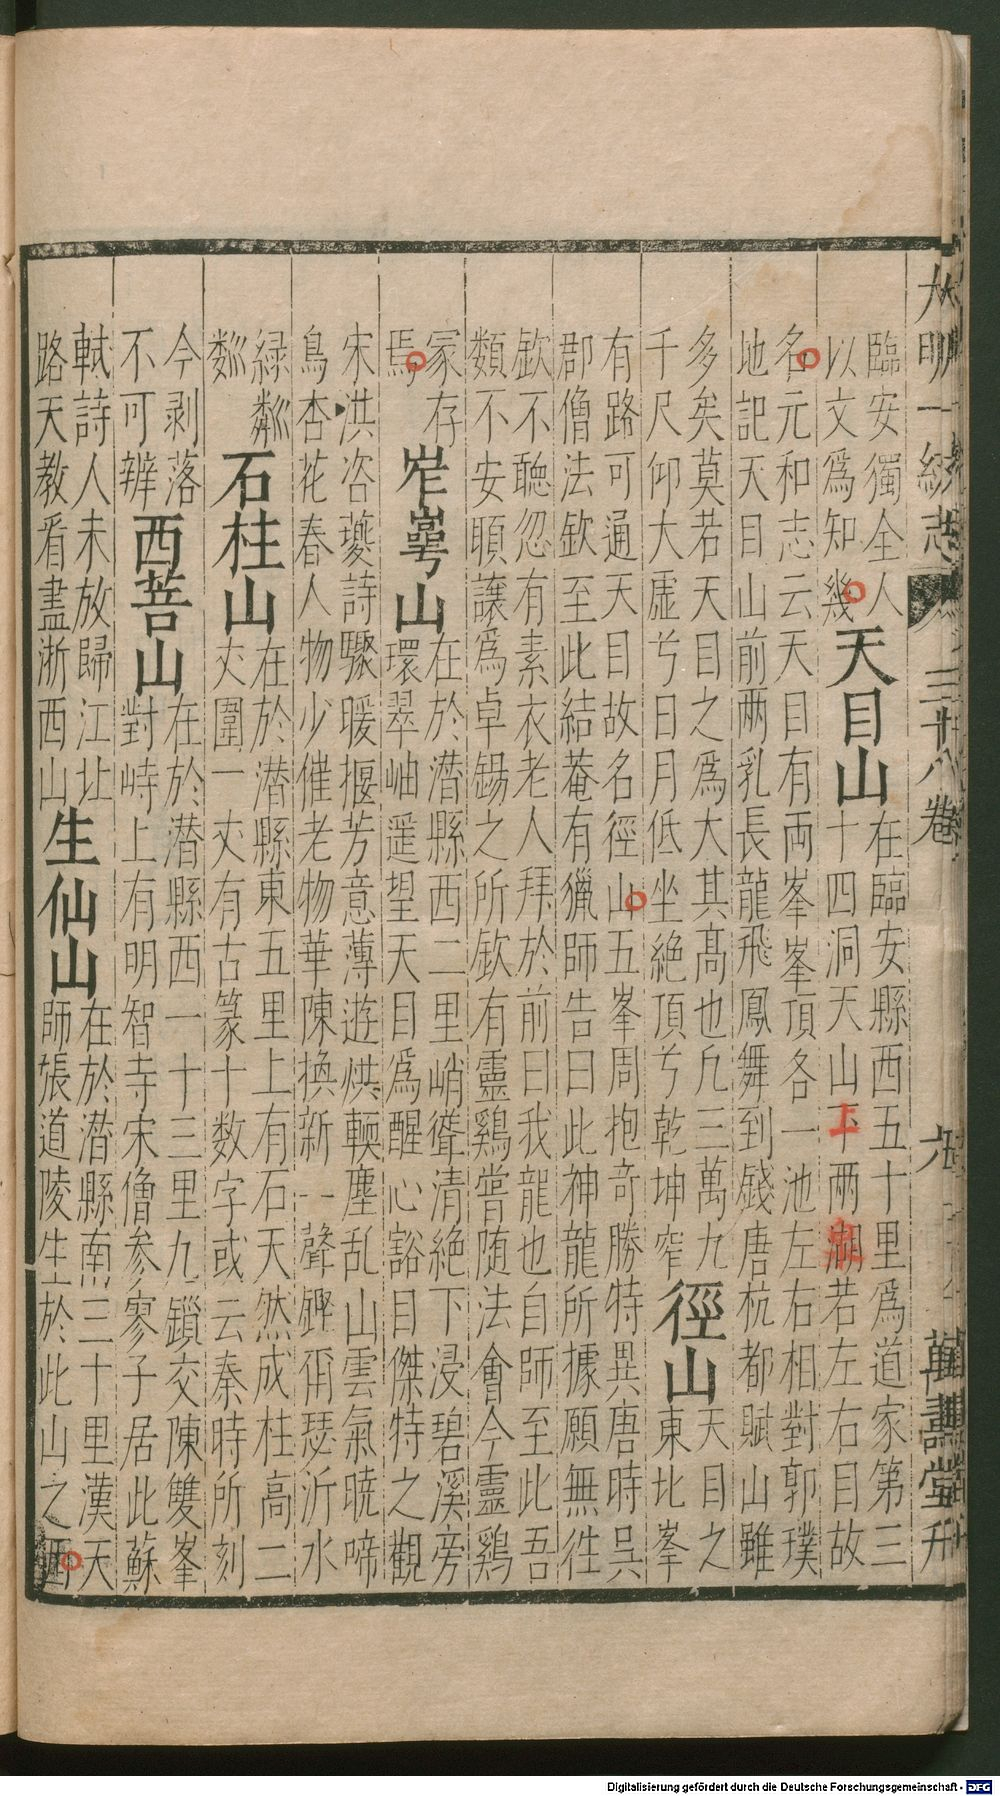 大明一統志 三十八卷 九 萬壽堂刊
臨安獨全人
以文爲知幾
天目山
在臨安縣西五十里爲道家第三
十四洞天山上兩湖若左右目故
名元和志云天目有両峯峯頂各一池左右相對郭璞
地記天目山前兩乳長龍飛鳳舞到錢唐杭都賦山雖
多矣莫若天目之爲大其髙也凢三萬九
千尺仰大虛兮日月低坐絶頂兮乾坤窄
徑山
天目之
東北峯
有路可通天目故名徑山五峯周抱竒勝特異唐時呉
郡僧法欽至此結菴有獵師告曰此神龍所據願無徃
欽不聽忽有素衣老人拜於前曰我龍也自師至此吾
類不安頤讓爲卓錫之所欽有靈鷄嘗随法會今靈鷄
冢存
焉
岝崿山
在於潛縣西二里峭聳清絶下浸碧溪旁
環翠岫遥望天目爲醒心豁目傑特之觀
宋洪咨夔詩驟暖揠芳意薄遊烘輭塵乱山雲氣暁啼
鳥杏花春人物少催老物華陳換新一聲鐸屑瑟沂水
緑粼
粼
石柱山
在於潜縣東五里上有石天然成柱高二
丈圍一丈有古篆十数字或云秦時所刻
今剥落
不可辨
西菩山
在於潜縣西一十三里九鎻交陳雙峯
對峙上有明智寺宋僧參寥子居此蘇
軾詩人未放歸江北
路天教看盡浙西山
生仙山
在於潜縣南三十里漢天
師張道陵生於此山之西
Digitalisierung gefördert durch die Deutsche Forschungsgemeinschaft - DFG